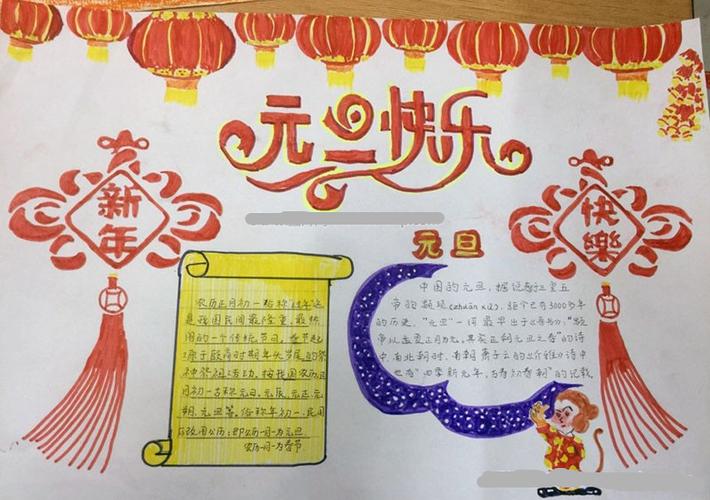 元旦快乐
新年
快樂
元旦
农历正月初一 称"过年"这
是我国民间最隆重、最热
闹的一个传统节日。春节起
源于殷商时期年头岁尾的祭
神祭祖活动。按我国农历,正
月初一古称元日、元辰、元正、元
朔、元旦等。俗称年初一、民国
后改用公历,即公历一月一为元旦
农历一月一为春节
中国的元旦,据说 三皇五
帝的颛顼(zhuān xū),距今已有3000多年
的历史。"元旦"一词最早出于《晋书》:"颛
帝以孟夏正月为元,其实正朔元旦之春"的诗
中,南北朝时,南朝萧子云的《介雅》诗中
也有"四季新元年,万寿初春朝"的记载。